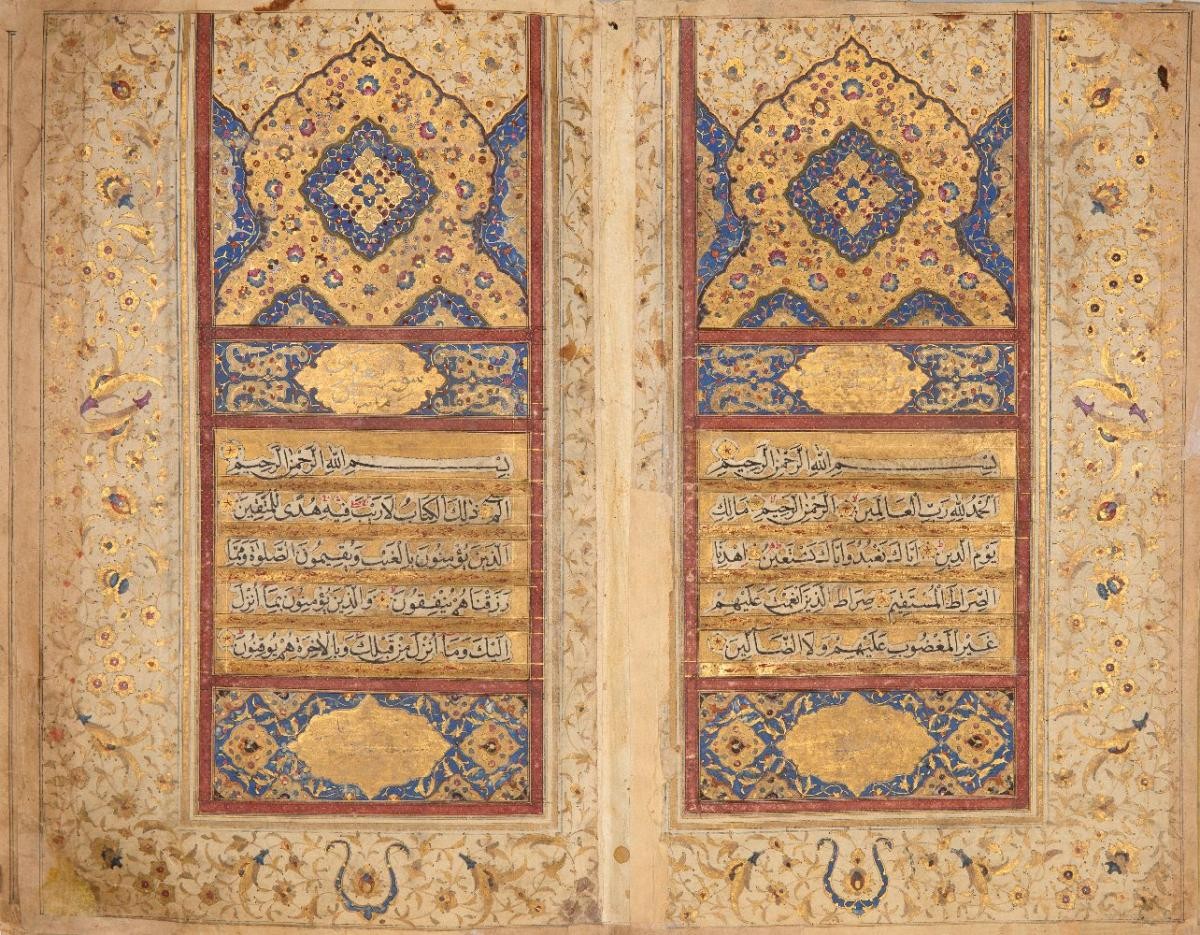 بسم الله الرحمن الرحيم
الحمد لله رب العالمين الرحمن الرحيم مالك
يوم الدين اياك نعبد واياك نستعين اهدنا
الصراط المستقيم صراط الذين انعمت عليهم
غير المغضوب عليهم ولا الضالين
بسم الله الرحمن الرحيم
الم ذلك الكتاب لا ريب فيه هدى للمتقين
الذين يؤمنون بالغيب ويقيمون الصلوة ومما
رزقناهم ينفقون والذين يؤمنون بما انزل
اليك وما انزل من قبلك وبالاخرة هم يوقنون